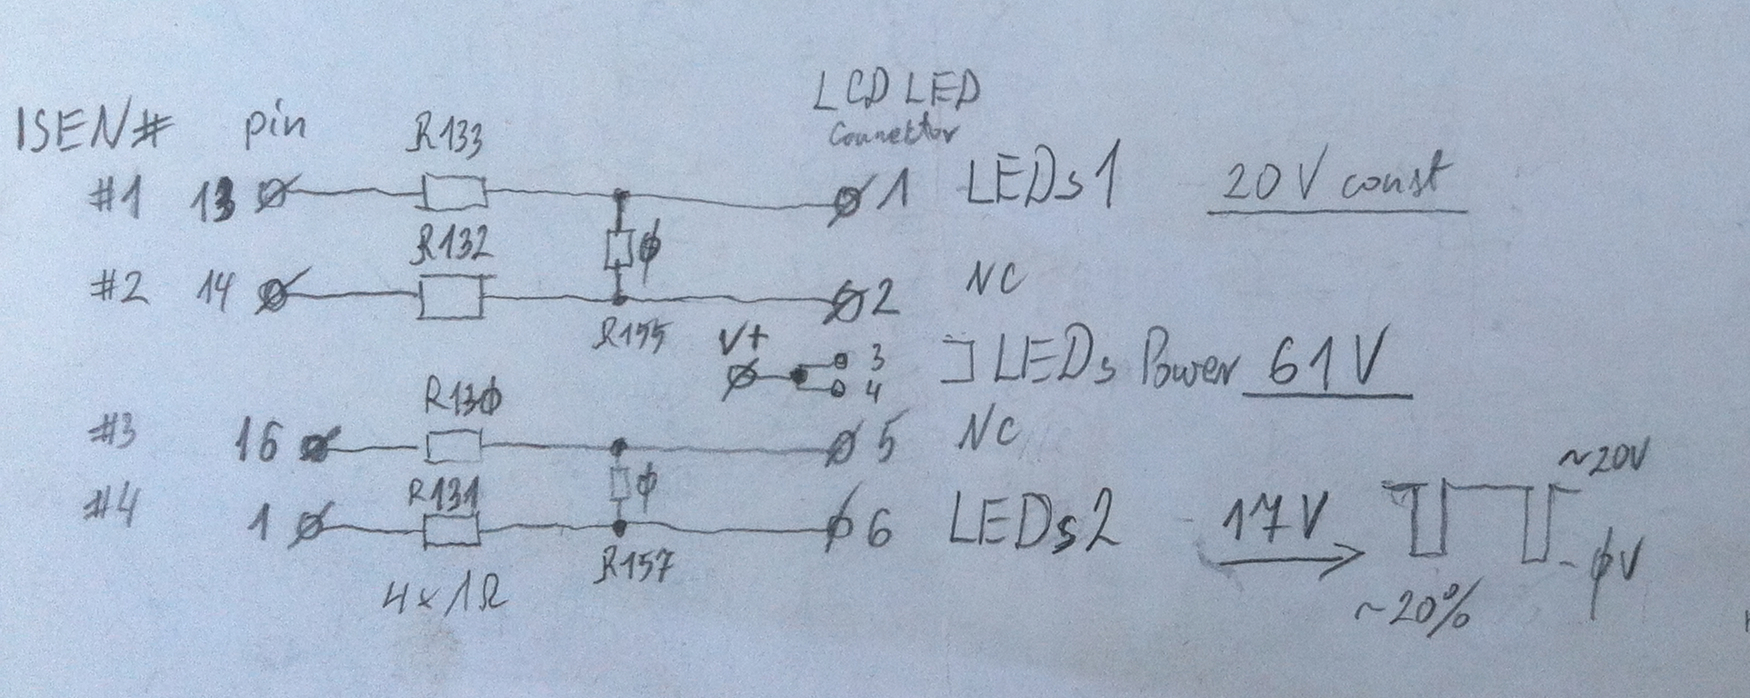 LCD LED
Connector
ISEN# pin R133
#1 13 1 LEDs1 20V const
R132 ϕ
#2 14 2 NC
R155 V+
3 ] LEDs Power 61V
4
R13ϕ
#3 16 5 NC
R131 ϕ ~20V
#4 1 6 LEDs2 17V
R157 - ϕV
4x1Ω ~20%